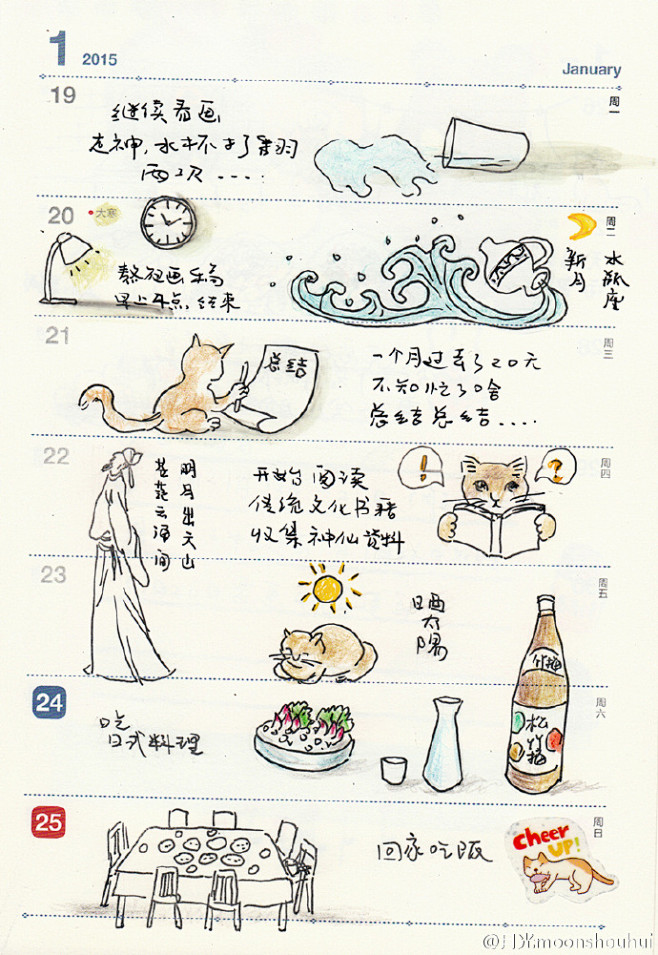 1 2015
January
19
周一
继续看画
走神,水杯打了翻
两次....
20
大寒
周二
水瓶座
新月
熬夜画稿
早上4点结束
21
周三
总结
一个月过去了20天
不知忙了啥
总结总结....
22
周四
明月出天山
苍茫云海间
开始阅读
传统文化书籍
收集神仙资料
!
?
23
周五
晒太阳
24
周六
吃
日式料理
竹梅
松竹梅
25
周日
回家吃饭
cheer
UP!
moonshouhui